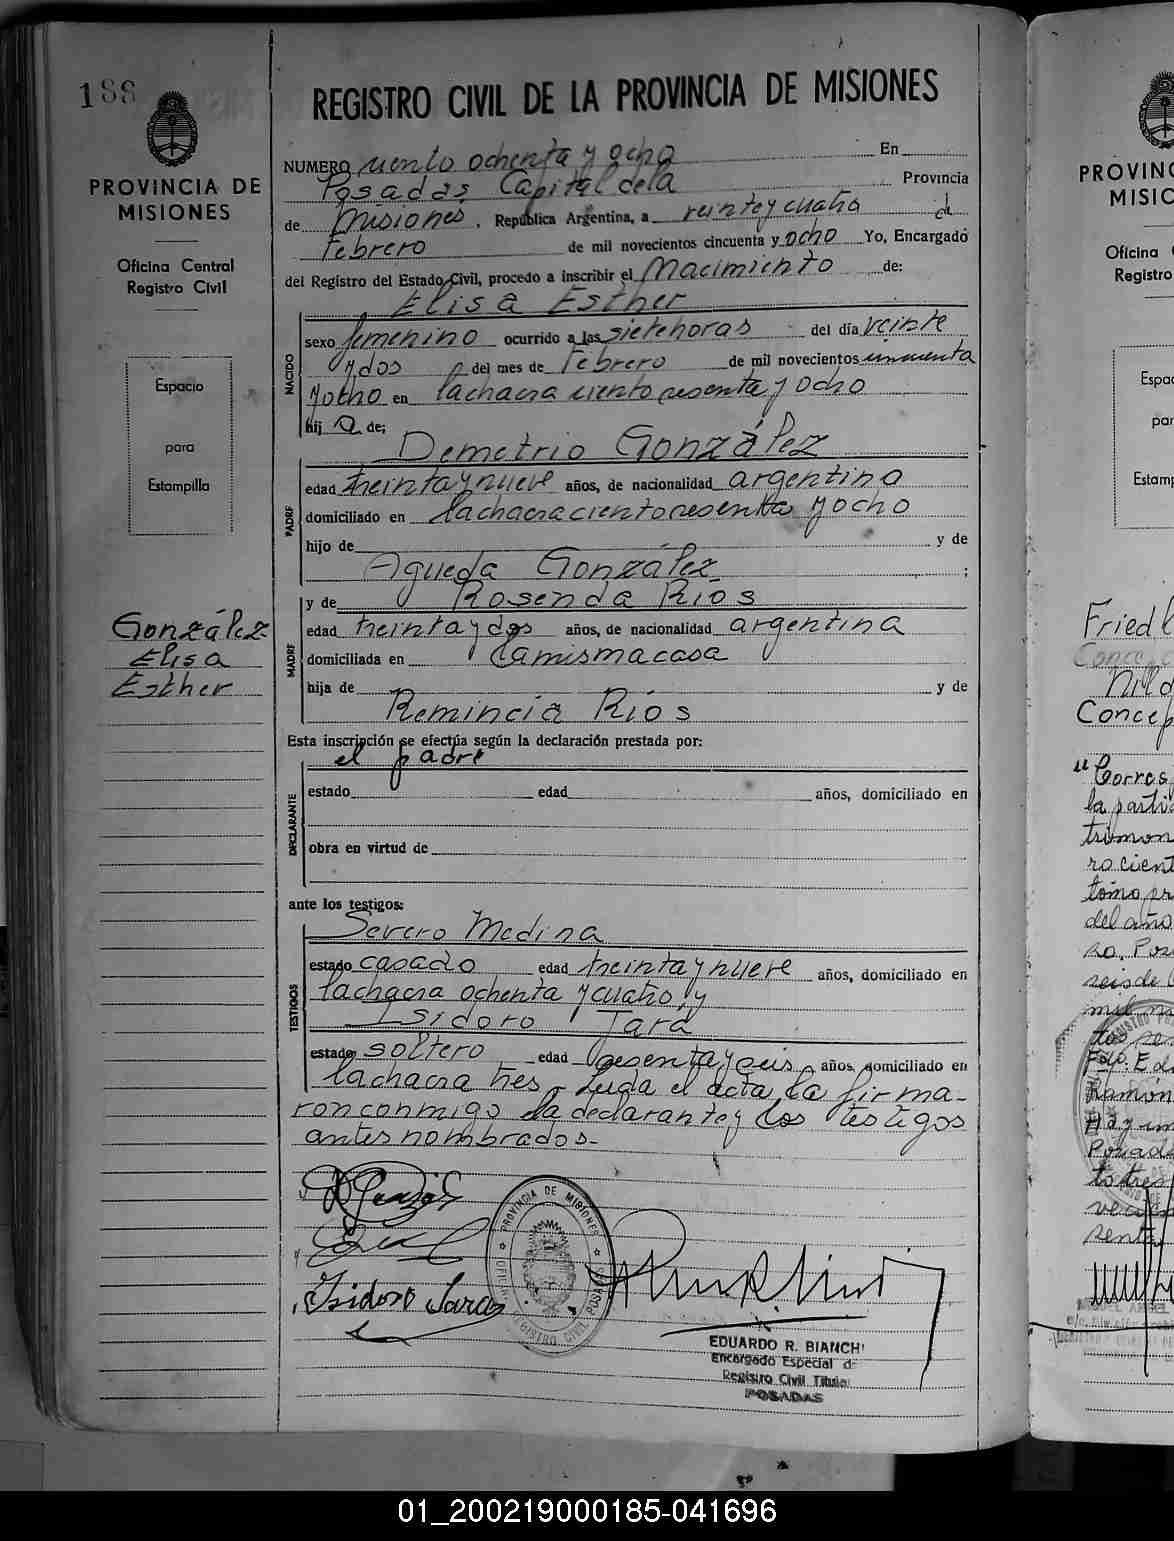 188
PROVINCIA DE
MISIONES
Oficina Central
Registro Civil
Espacio
para
Estampilla
González
Elisa
Esther
REGISTRO CIVIL DE LA PROVINCIA DE MISIONES
NUMERO ciento ochenta y ocho En
Posadas Capital dela Provincia
de Misiones, República Argentina, a veinte y cuatro de
Febrero de mil novecientos cincuenta y ocho Yo, Encargado
del Registro del Estado Civil, procedo a inscribir el Nacimiento de:
Elisa Esther
NACIDO
sexo femenino ocurrido a las siete horas del día veinte
y dos del mes de Febrero de mil novecientos cincuenta
y ocho en la chacra ciento sesenta y ocho
hija de;
Demetrio González
PADRE
edad treinta y nueve años, de nacionalidad argentino
domiciliado en la chacra ciento sesenta y ocho
hijo de y de
Agueda González ;
y de Rosenda Ríos
MADRE
edad treinta y dos años, de nacionalidad argentina
domiciliada en la misma casa
hija de y de
Remincia Ríos
Esta inscripción se efectúa según la declaración prestada por:
el padre
DECLARANTE
estado edad años, domiciliado en
obra en virtud de
ante los testigos:
Severo Medina
TESTIGOS
estado casado edad treinta y nueve años, domiciliado en
la chacra ochenta y cuatro, y
Isidoro Jara
estado soltero edad sesenta y seis años, domiciliado en
la chacra tres - Leida el acta, la firma-
ron conmigo la declarante y los testigos
antes nombrados.-
Isidoro Jara
PROVINCIA DE MISIONES
REGISTRO CIVIL POSADAS
EDUARDO R. BIANCHI
Encargado Especial de
Registro Civil Titular
POSADAS
PROVINC
MISIO
Oficina
Registro
Espac
par
Estamp
Nild
Concep
"Corres
la parti
ro cient
tomo pr
del año
seis de
mil n
Ramón
Posad
01_200219000185-041696